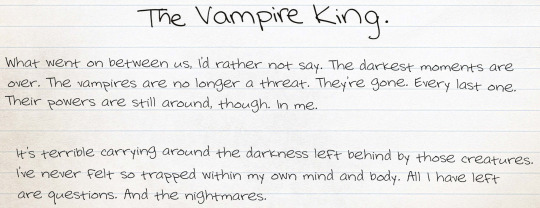 The Vampire King.
What went on between us, I'd rather not say. The darkest moments are
over. The vampires are no longer a threat. They're gone. Every last one.
Their powers are still around, though. In me.
It's terrible carrying around the darkness left behind by those creatures.
I've never felt so trapped within my own mind and body. All I have left
are questions. And the nightmares.